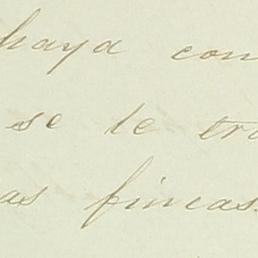 haya con
se le tra
as fincas